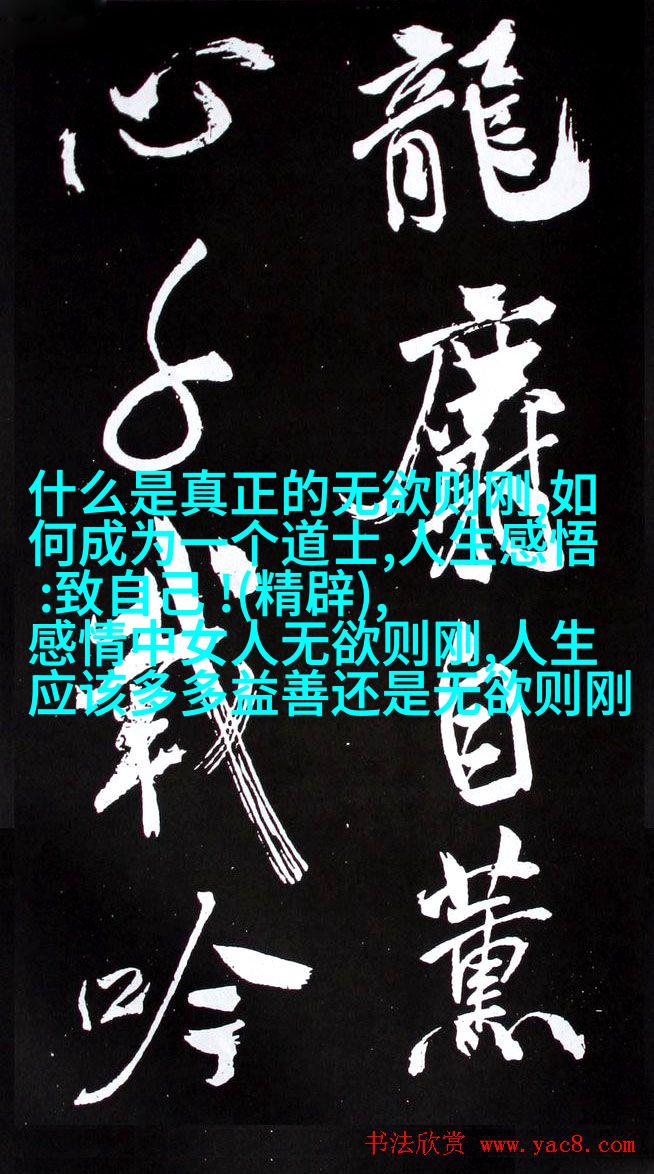 龍麝自薰
心千載吟
什么是真正的无欲则刚,如
何成为一个道士,人生感悟
:致自己 !(精辟),
感情中女人无欲则刚,人生
应该多多益善还是无欲则刚
书法欣赏 www.yac8.com